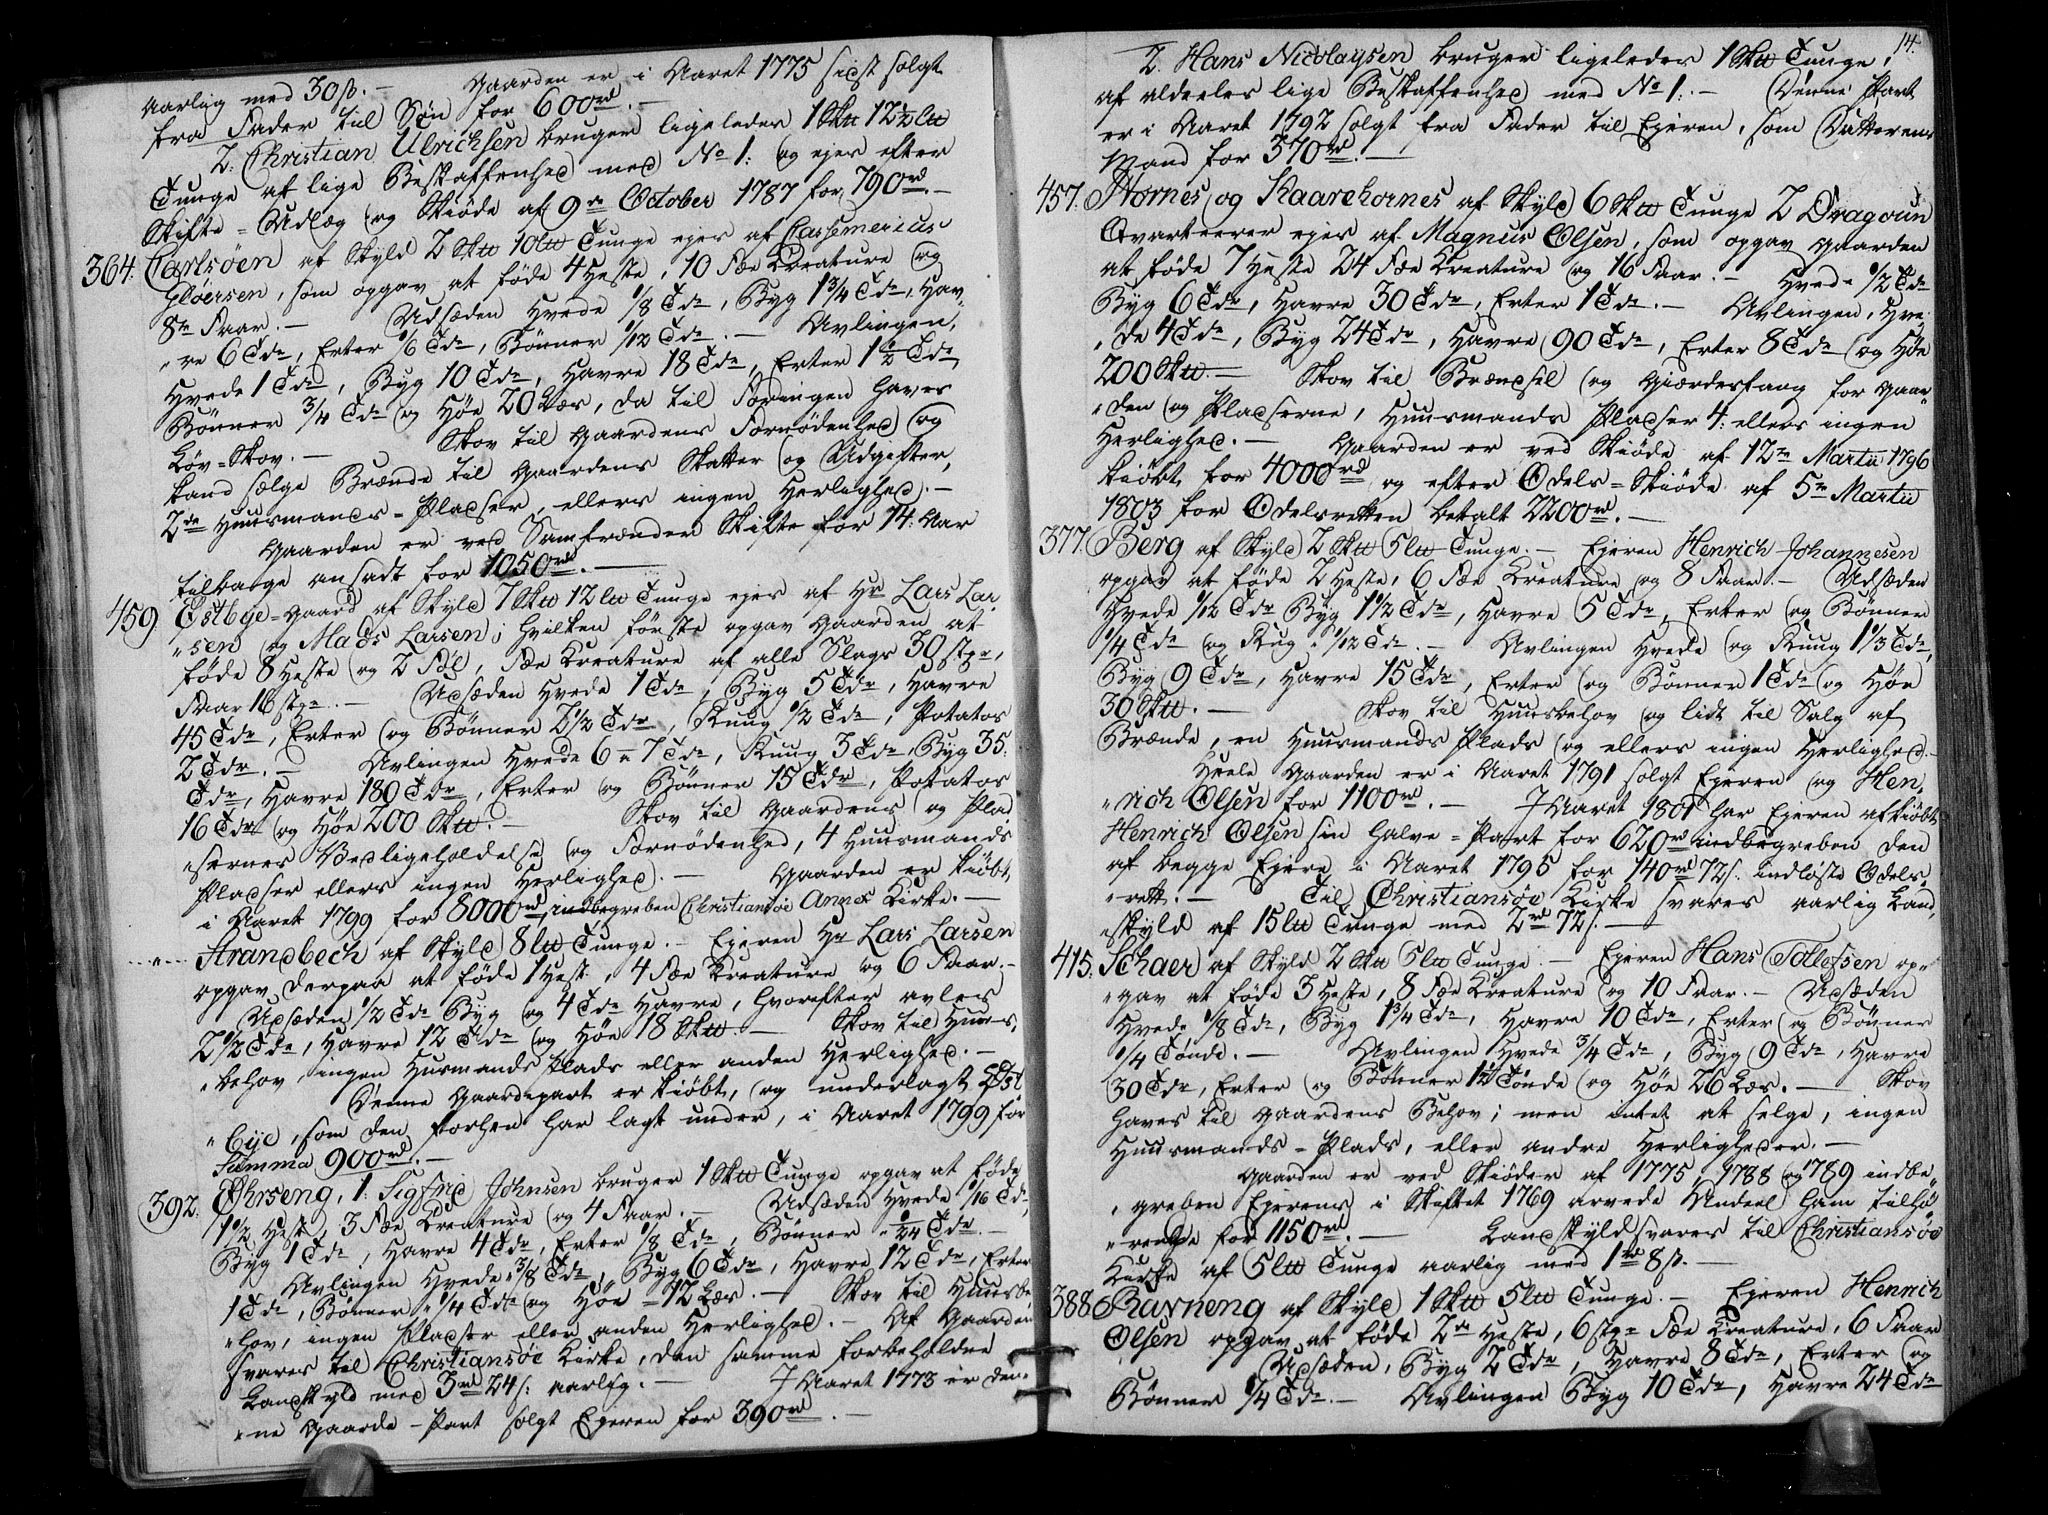 aarlig med 30 ß. — Gaarden er i Aaret 1775 sidst solgt
fra Fader til Søn for 600 rd. —
2. Christian Ulrichsen bruger ligeledes 1 Skt 12½ lt
Tunge af lige Beskaffenhed med No 1: og ejes efter
Skifte-Udlæg og Skiøde af 9de October 1787 for 790 rd. —
364. Carlsøen af Skyld 2 Skt 10 lt Tunge ejes af Cassemerius
Gløersen, som opgav at føde 4 Heste, 10 Fæe Creature og
8te Faar. — Udsæden Hvede 1/8 Tde, Byg 1¾ Tde, Hav-
„re 6 Tdr, Erter 1/6 Tde, Bønner 1/12 Tde. — Avlingen,
Hvede 1 Tde, Byg 10 Tdr, Havre 18 Tdr, Erter 1½ Tde
Bønner ¾ Tde og Høe 20 Læs, da til Foringen haves
Løv-Skov. — Skov til Gaardens Fornødenhed og
kand sælge Brænde til Gaardens Skatter og Udgifter,
2de Huusmands-Pladser, ellers ingen Herlighed. —
Gaarden er ved Samfrænder Skifte for 14. Aar
tilbage ansadt for 1050 rd. —
459. Østbye-Gaard af Skyld 7 Skt 12 lt Tunge ejes af Hr Lars Lar-
„sen og Mads Larsen; hvilken første opgav Gaarden at
føde 8 Heste og 2 Føl, Fæe Creature af alle Slags 30 stkr,
Faar 16 stkr. — Udsæden Hvede 1 Tde, Byg 5 Tdr, Havre
45 Tdr, Erter og Bønner 2½ Tdr, Ruug ½ Tde, Potatos
2 Tdr. — Avlingen Hvede 6 a 7 Tdr, Ruug 3 Tdr, Byg 35.
Tdr, Havre 180 Tdr, Erter og Bønner 15 Tdr, Potatos
16 Tdr og Høe 200 Skt. — Skov til Gaardens og Plad-
„sernes Vedligeholdelse og Fornødenhed, 4 Huusmands
Pladser ellers ingen Herlighed. — Gaarden er kiøbt
i Aaret 1799 for 8000 rd, indbegreben Christiansøe Annex Kirke. —
„ Strandbech af Skyld 8 lt Tunge. — Ejeren Hr Lars Larsen
opgav derpaa at føde 1 Hest, 4 Fæe Creature og 6 Faar. —
Udsæden ½ Tde Byg og 4 Tdr Havre, hvorefter avles
2½ Tde, Havre 12 Tdr og Høe 18 Skt. — Skov til Huus-
„behov, ingen Husmands Plads eller anden Herlighed. —
Denne Gaardspart er kiøbt, og underlagt Øst
„bye, som den forhen har lagt under, i Aaret 1799 for
Summa 900 rd. —
392. Ohrseng, 1: Sigfrid Johnsen bruger 1 Skt Tunge opgav at føde
1½ Hest, 3 Fæe Creature og 4 Faar. — Udsæden Hvede 1/16 Tde,
Byg 1 Tde, Havre 4 Tdr, Erter 1/8 Tde, Bønner 1/24 Tde. —
Avlingen Hvede 3/8 Tde, Byg 6 Tdr, Havre 12 Tdr, Erter
1 Tde, Bønner ¼ Tde og Høe 12 Læs. — Skov til Huusbe-
„hov, ingen Pladser eller anden Herlighed. — Af Gaarden
svares til Christiansøe Kirke, den samme forbeholdne
Landskyld med 3 rd 24 s: aarlig. — I Aaret 1773 er den-
„ne Gaards-Part solgt Ejeren for 390 rd. —
14.
2. Hans Nicolaysen bruger ligeledes 1 Skt Tunge,
af aldeeles lige Beskaffenhed med No 1: — Denne Part
er i Aaret 1792 solgt fra Fader til Ejeren, som Datterens
Mand for 370 rd. —
457. Hornes og Kaarehornes af Skyld 6 Skt Tunge 2 Dragoun
Qvarteerer ejes af Magnus Olsen, som opgav Gaarden
at føde 7 Heste 24 Fæe Creature og 16 Faar. — Hvede ½ Tde
Byg 6 Tdr, Havre 30 Tdr, Erter 1 Tde. — Avlingen, Hve-
„de 4 Tdr, Byg 24 Tdr, Havre 90 Tdr, Erter 8 Tdr og Høe
200 Skt. — Skov til Brændsel og Giærdesfang for Gaar-
„den og Pladserne, Huusmands Pladser 4: ellers ingen
Herlighed. — Gaarden er ved Skiøde af 12te Martii 1796
kiøbt for 4000 rd og efter Odels-Skiøde af 5te Martii
1803 for Odelsretten betalt 2200 rd. —
377. Berg af Skyld 2 Skt 5 lt Tunge. — Ejeren Henrich Johannesen
opgav at føde 2 Heste, 6 Fæe Creature og 8 Faar. — Udsæden
Hvede 1/12 Tde Byg 1½ Tde, Havre 5 Tdr, Erter og Bønner
¼ Tde og Rug 1/12 Tde. — Avlingen Hvede og Ruug 1⅓ Tde,
Byg 9 Tdr, Havre 15 Tdr, Erter og Bønner 1 Tde og Høe
30 Skt. — Skov til Huusbehov og lidt til Salg af
Brænde, en Huusmands Plads og ellers ingen Herlighed. —
Heele Gaarden er i Aaret 1791 solgt Ejeren og Hen-
„rich Olsen for 1100 rd. — I Aaret 1801 har Ejeren afkiøbt
Henrich Olsen sin halve-Part for 620 rd indbegreben den
af begge Ejere i Aaret 1795 for 140 rd 72 s. indløste Odels-
„rett. — Til Christiansøe Kirke svares aarlig Land-
„skyld af 15 lt Tunge med 2 rd 72 s. —
415. Schaer af Skyld 2 Skt 5 lt Tunge. — Ejeren Hans Tollefsen op-
„gav at føde 3 Heste, 8 Fæe Creature og 10 Faar. — Udsæden
Hvede 1/8 Tde, Byg 1¾ Tde, Havre 10 Tdr, Erter og Bønner
¼ Tønde. — Avlingen Hvede ¾ Tde, Byg 9 Tdr, Havre
30 Tdr, Erter og Bønner 1½ Tønde og Høe 26 Læs. — Skov
haves til Gaardens Behov; men intet at selge, ingen
Huusmands-Plads, eller andre Herligheder. —
Gaarden er ved Skiøder af 1775, 1788 og 1789 indbe-
„greben Ejerens i Skiftet 1769 arvede Andeel ham tilhø-
„rende for 1150 rd. — Landskyld svares til Christiansøe
Kirke af 5 lt Tunge aarlig med 1 rd 8 ß. —
388. Ravneng af Skyld 1 Skt 5 lt Tunge. — Ejeren Henrich
Olsen opgav at føde 2de Heste, 6 stkr Fæe Creature, 6 Faar
Udsæden, Byg 2 Tdr, Havre 8 Tdr, Erter og
Bønner ¼ Tde. — Avlingen Byg 10 Tdr, Havre 24 Tdr